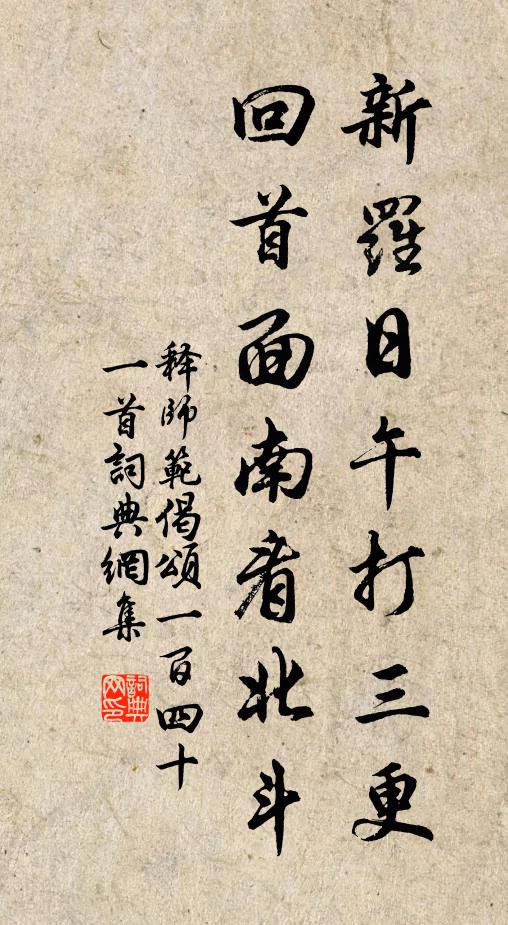 新羅日午打三更
回首面南看北斗
释師範偈頌一百四十
一首詞典網集
詞典
网印